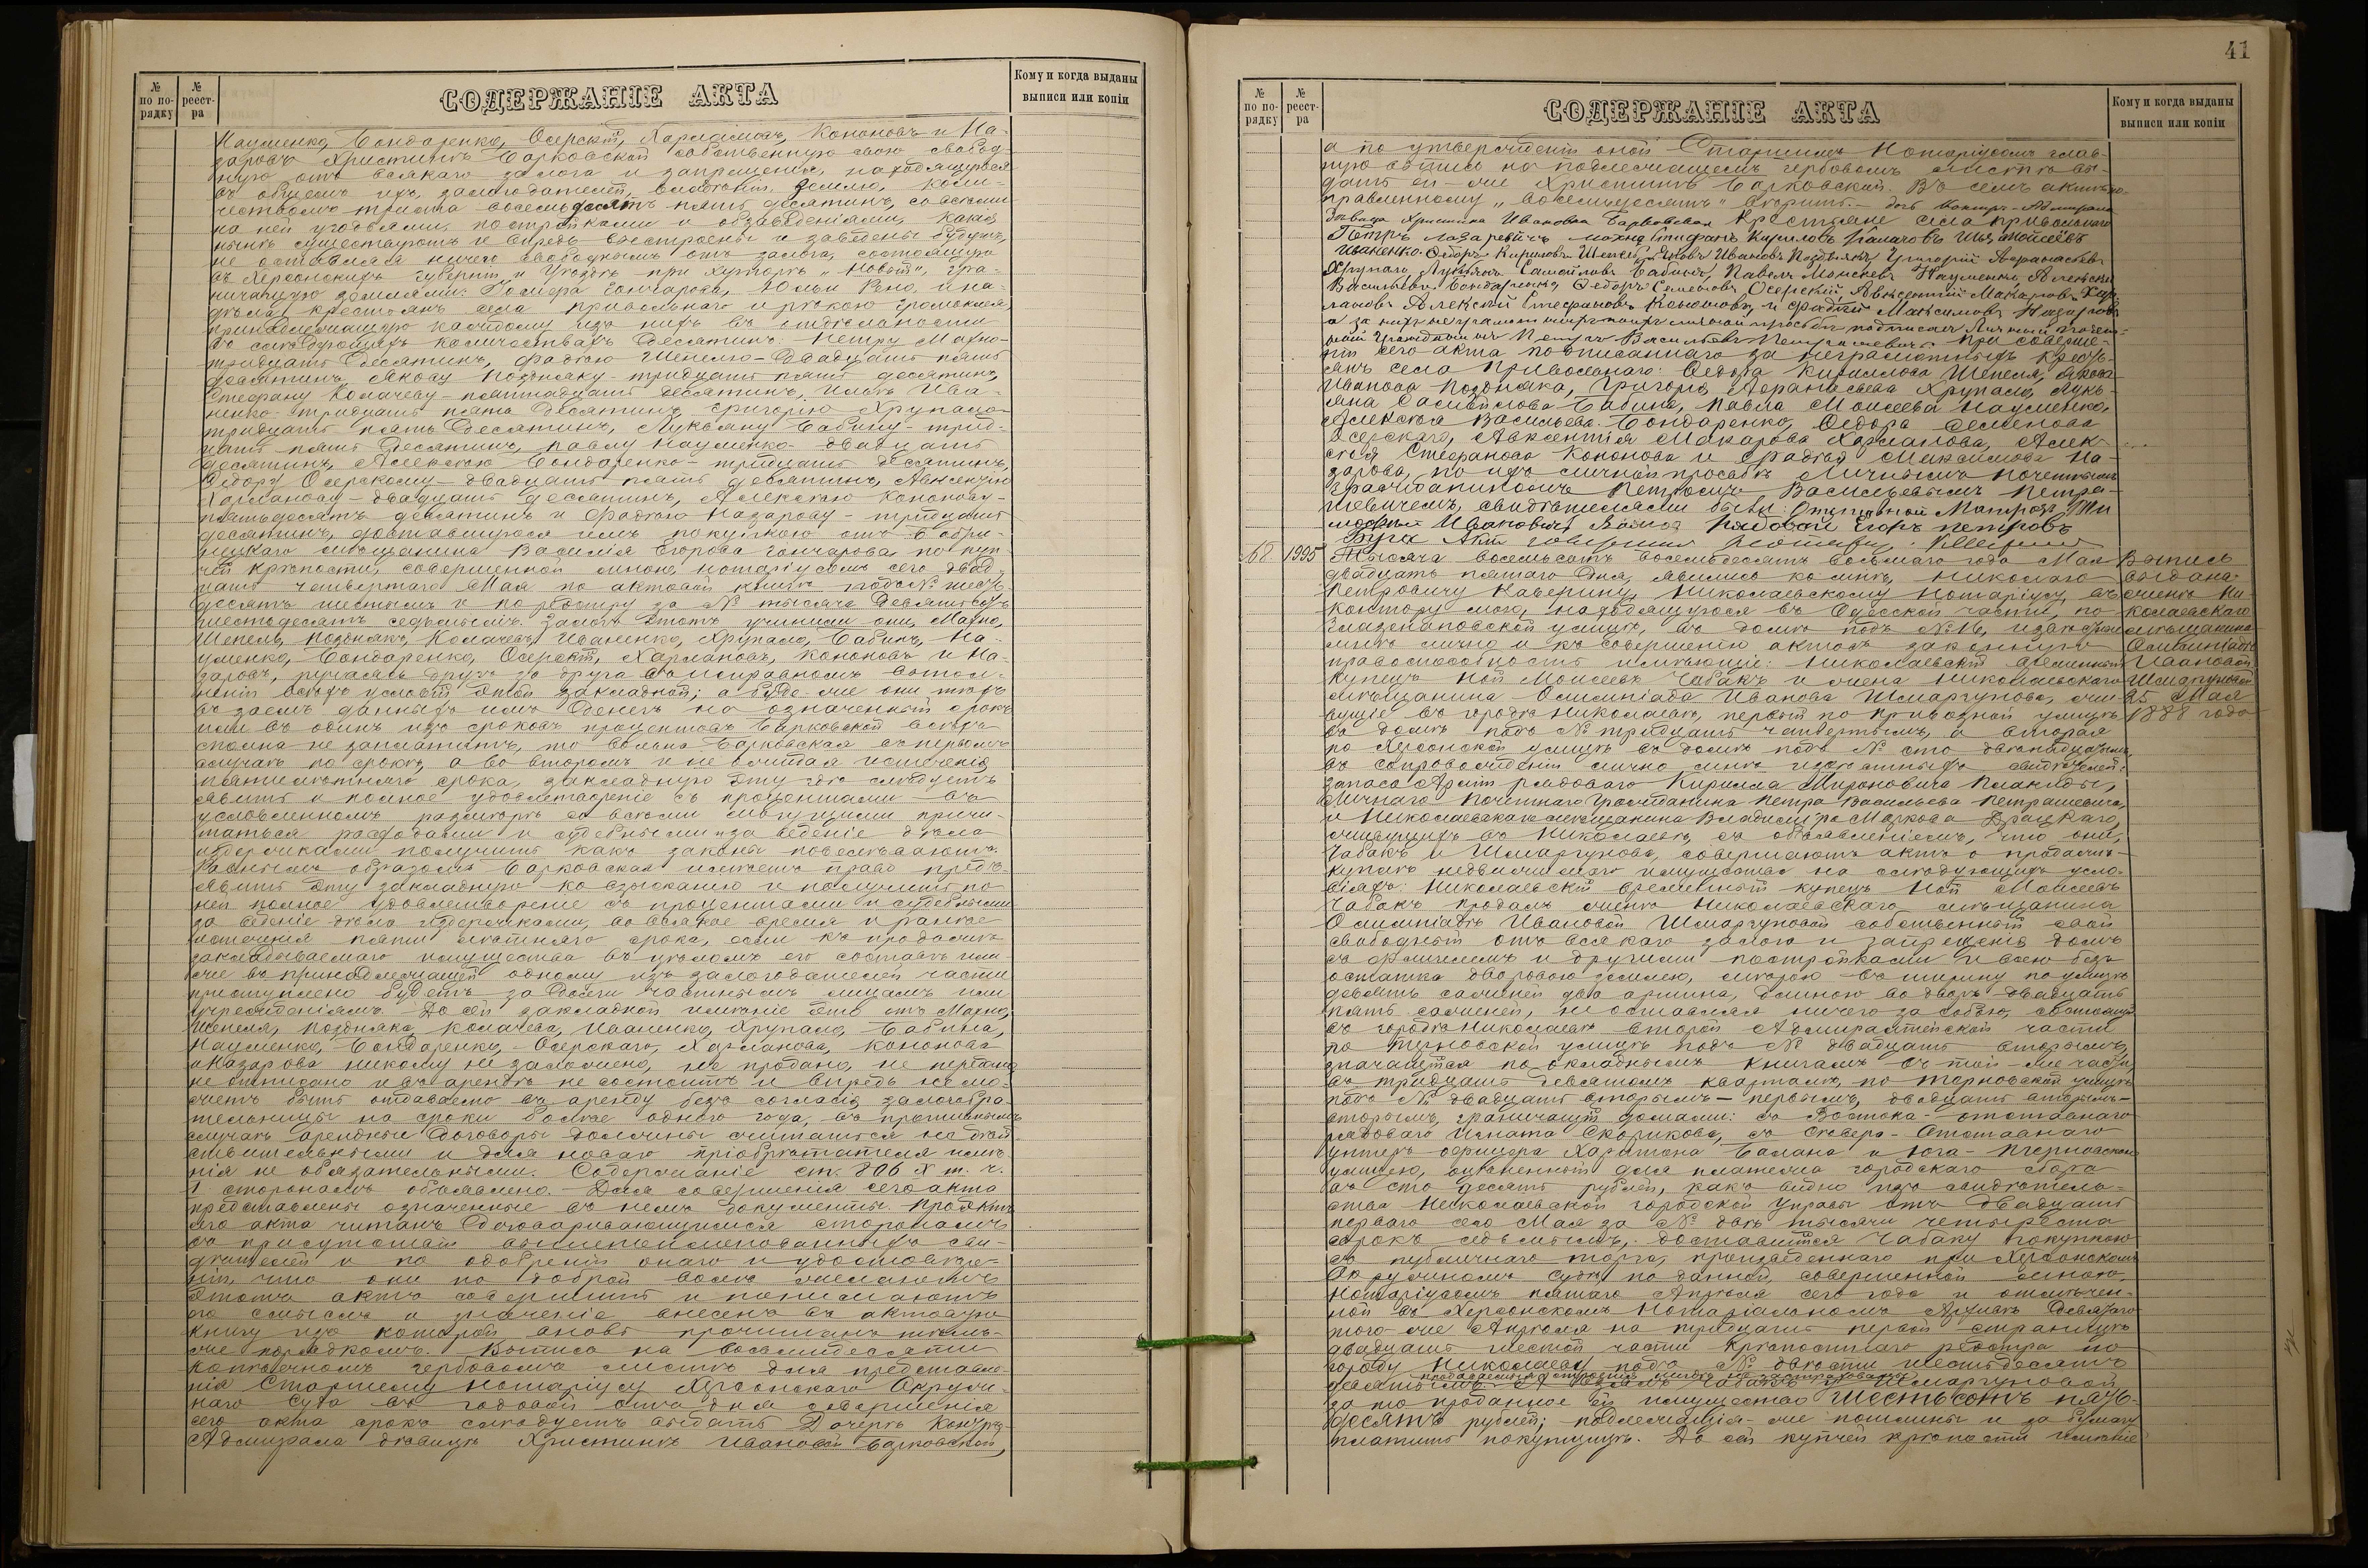 № по по-рядку
№ реест-ра
СОДЕРЖАНІЕ АКТА
Кому и когда выданы выписи или копіи
Науменко, Бондаренко, Осерскій, Хармановъ, Кононовъ и На-
заровъ Христинѣ Барковской собственную свою свобод-
ную отъ всякаго залога и запрещенія, находящуюся
въ общемъ ихъ, залогодателей, владѣніи землю, коли-
чествомъ триста восемьдесятъ пять десятинъ, со всѣми
на ней угодьями, постройками и обзаведеніями, какія
нынѣ существуютъ и впредь выстроены и заведены будутъ,
не оставляя ничего свободнымъ отъ залога, состоящую
въ Херсонскихъ губерніи и Уѣздѣ при хуторѣ „Новый“, гра-
ничащую землями: Гомера Гончарова, Юльи Рено, и на-
дѣла крестьянъ села Привольнаго и рѣкою Громоклея,
принадлежащую каждому изъ нихъ въ отдѣльности
въ слѣдующихъ количествахъ десятинъ: Петру Махно-
тридцать десятинъ, Фадѣю Шепелю - двадцать пять
десятинъ, Якову Поздняку - тридцать пять десятинъ,
Стефану Колачеву - пятнадцать десятинъ, Ильѣ Ива-
ненко - тридцать пять десятинъ, Григорію Хрупало
тридцать пять десятинъ, Лукьяну Бабину - трид-
цать пять десятинъ, Павлу Науменко - двадцать
десятинъ, Алексѣю Бондаренко - тридцать десятинъ,
Федору Осерскому - двадцать пять десятинъ, Авксентію
Харманову - двадцать десятинъ, Алексѣю Кононову -
пятьдесятъ десятинъ и Фадѣю Назарову - тридцать
десятинъ, доставшуюся имъ покупкою отъ Бобри-
нецкаго мѣщанина Василія Егорова Гончарова по куп-
чей крѣпости, совершенной мною, нотаріусомъ сего двад-
цать четвертаго Мая по актовой книгѣ подъ № шесть-
десятъ шестымъ и по реестру за № тысяча девятьсотъ
шестьдесятъ седьмымъ. Залогъ этотъ учинили они, Махно,
Шепель, Позднякъ, Колачевъ, Иваненко, Хрупало, Бабинъ, На-
уменко, Бондаренко, Осерскій, Хармановъ, Кононовъ и На-
заровъ, ручаясь другъ за друга въ исправномъ выпол-
неніи всѣхъ условій этой закладной; а буде-же они тѣхъ
въ заемъ данныхъ имъ денегъ на означенный срокъ
или въ одинъ изъ сроковъ процентовъ Барковской всѣхъ
сполна не заплатятъ, то вольна Барковская въ первомъ
случаѣ по срокѣ, а во второмъ и не считая истеченія
пятилѣтняго срока, закладную эту гдѣ слѣдуетъ
явить и полное удовлетвореніе съ процентами въ
условленномъ размѣрѣ со всѣми могущими причи-
таться расходами и судебными за веденіе дѣла
издержками получить какъ законы повелѣваютъ.
Равнымъ образомъ Барковская имѣетъ право предъ-
явить эту закладную ко взысканію и получить по
ней полное удовлетвореніе съ процентами и судебными
за веденіе дѣла издержками, во всякое время и ранѣе
истеченія пяти лѣтняго срока, если къ продажѣ
закладываемаго имущества въ цѣломъ его составѣ или
же въ принадлежащей одному изъ залогодателей части
приступлено будетъ за долги частнымъ лицамъ или
учрежденіямъ. До сей закладной имѣніе это отъ Махно,
Шепеля, Поздняка, Колачева, Иваненко, Хрупало, Бабина,
Науменко, Бондаренко, Осерскаго, Харманова, Кононова
и Назарова никому не заложено, не продано, не передано,
не отписано и въ арендѣ не состоитъ и впредь не мо-
жетъ быть отдаваемо въ аренду безъ согласія залогобра-
тельницы на сроки болѣе одного года, въ противномъ
случаѣ арендные договоры должны считаться не дѣй-
ствительными и для новаго пріобрѣтателя имѣ-
нія не обязательными. Содержаніе ст. 806 X т. ч.
1 сторонамъ объявлено. Для совершенія сего акта
представлены означенные въ немъ документы. Проэктъ
сего акта читанъ договаривающимися сторонамъ
въ присутствіи вышепоименованныхъ сви-
дѣтелей и по одобреніи онаго и удостовѣре-
ніи, что они по доброй волѣ желаютъ
этотъ актъ совершить и понимаютъ
его смыслъ и значеніе внесенъ въ актовую
книгу изъ которой вновь прочитанъ тѣмъ-
же порядкомъ. Выпись на восьмидесяти
копѣечномъ гербовомъ листѣ для представле-
нія Старшему Нотаріусу Херсонскаго Окруж-
наго Суда въ годовой отъ дня совершенія
сего акта срокъ слѣдуетъ выдать Дочери Контръ-
Адмирала дѣвицѣ Христинѣ Ивановой Барковской,
41
№ по по-рядку
№ реест-ра
СОДЕРЖАНІЕ АКТА
Кому и когда выданы выписи или копіи
а по утвержденіи оной Старшимъ Нотаріусомъ глав-
ную выпись на подлежащемъ гербовомъ листѣ вы-
дать ей-же Христинѣ Барковской. Въ семъ актѣ по-
правленному „восемьдесятъ“ вѣрить. - дочь Контръ-Адмирала
дѣвица Христина Ивановна Барковская Крестьяне села Привольнаго
Петръ Лазаревичъ Махно Стефанъ Кириловъ Калачовъ Илья Мойсѣевъ
Иваненко Ѳедоръ Кириловъ Шепель, Яковъ Ивановъ Позднякъ, Григорій Афанасьевъ
Хрупало, Лукьянъ Самойловъ Бабинъ, Павелъ Моисѣевъ Науменко, Алексѣй
Васильевъ Бондаренко, Федоръ Семеновъ Осерскій, Авксентій Макаровъ Хар-
мановъ Алексѣй Стефановъ Кононовъ, и Фадѣй Максимовъ Назаровъ
а за нихъ неграмотныхъ по ихъ личной просьбѣ подписалъ Личный Почет-
ный Гражданинъ Петръ Васильевъ Петрашевичъ. При соверше-
ніи сего акта подписаннаго за неграмотныхъ кресть-
янъ села Привольнаго: Федора Кириллова Шепеля, Якова
Иванова Поздняка, Григорія Афанасьева Хрупало, Лукь-
яна Самойлова Бабина, Павла Моисеева Науменко,
Алексѣя Васильева Бондаренко, Федора Семенова
Осерскаго, Авксентія Макарова Харманова, Алек-
сѣя Стефанова Кононова и Фадѣя Максимова На-
зарова, по ихъ личной просьбѣ Личнымъ Почетнымъ
Гражданиномъ Петромъ Васильевымъ Петра-
шевичемъ, свидѣтелями были: Отставной Матрозъ Ти
мофѣй Ивановичъ Рядовой Егоръ Петровъ
Актъ совершилъ Нотаріусъ
68 1995 Тысяча восемьсотъ восемьдесятъ восьмаго года Мая
двадцать пятаго дня, явились ко мнѣ, Николаю
Петровичу Каверину, Николаевскому Нотаріусу, въ
контору мою, находящуюся въ Одесской части, по
Глазенаповской улицѣ, въ домѣ подъ № 16, извѣстные
мнѣ лично и къ совершенію актовъ законную
правоспособность имѣющіе: Николаевскій временный
купецъ Ной Моисеевъ Чабакъ и жена Николаевскаго
мѣщанина Олимпіада Иванова Шмаргунова, жи-
вущіе въ городѣ Николаевѣ, первый по Привозной улицѣ
въ домѣ подъ № тридцать четвертымъ, а вторая
по Херсонской улицѣ въ домѣ подъ № сто двѣнадцатымъ
въ сопровожденіи лично мнѣ извѣстныхъ свидѣтелей:
запаса Арміи рядоваго Кирилла Мироновича Плакиды,
Личнаго Почетнаго Гражданина Петра Васильева Петрашевича,
и Николаевскаго мѣщанина Владимира Маркова Драцкаго,
живущихъ въ Николаевѣ, съ объявленіемъ, что они,
Чабакъ и Шмаргунова, совершаютъ актъ о продажѣ-
куплѣ недвижимаго имущества на слѣдующихъ усло-
віяхъ: Николаевскій временный купецъ Ной Моисеевъ
Чабакъ продалъ женѣ Николаевскаго мѣщанина
Олимпіадѣ Ивановой Шмаргуновой собственный свой
свободный отъ всякаго залога и запрещенія домъ
съ флигелемъ и другими постройками и всею безъ
остатка дворовою землею, мѣрою въ ширину по улицѣ
девять саженей два аршина, длиною во дворъ двадцать
пять саженей, не оставляя ничего за собою, состоящій
въ городѣ Николаевѣ второй Адмиралтейской части
по Терновской улицѣ подъ № двадцать вторымъ,
значащійся по окладнымъ книгамъ въ той-же части,
въ тридцать девятомъ кварталѣ, по Терновской улицѣ
подъ №№ двадцать вторымъ - первымъ, двадцать вторымъ-
вторымъ, граничащій домами: съ Востока - отставнаго
рядоваго Игната Скорикова, съ Сѣвера - Отставнаго
унтеръ офицера Харитона Балана и Юга - Терновскою
улицею, оцѣненный для платежа городскаго сбора
въ сто десять рублей, какъ видно изъ свидѣтель-
ства Николаевской городской Управы отъ двадцать
перваго сего Мая за № двѣ тысячи четыреста
сорокъ седьмымъ, доставшійся Чабаку покупкою
съ публичнаго торга, произведеннаго при Херсонскомъ
Окружномъ Судѣ, по данной, совершенной мною,
Нотаріусомъ пятаго Апрѣля сего года и отмѣчен-
ной въ Херсонскомъ Нотаріальномъ Архивѣ девята-
того-же Апрѣля на тридцать первой страницѣ
двадцать шестой части крѣпостнаго реестра по
городу Николаеву подъ № двѣсти шестьдесятъ
девятымъ. А взялъ Чабакъ у Шмаргуновой
за то проданное ей имущество шестьсотъ пять-
десятъ рублей; подлежащія-же пошлины и за бумагу
платить покупщицѣ. До сей купчей крѣпости имѣніе
Выпись
выдана
женѣ Ни-
колаевскаго
мѣщанина
Олимпіадѣ
Ивановой
Шмаргуновой
25 Мая
1888 года